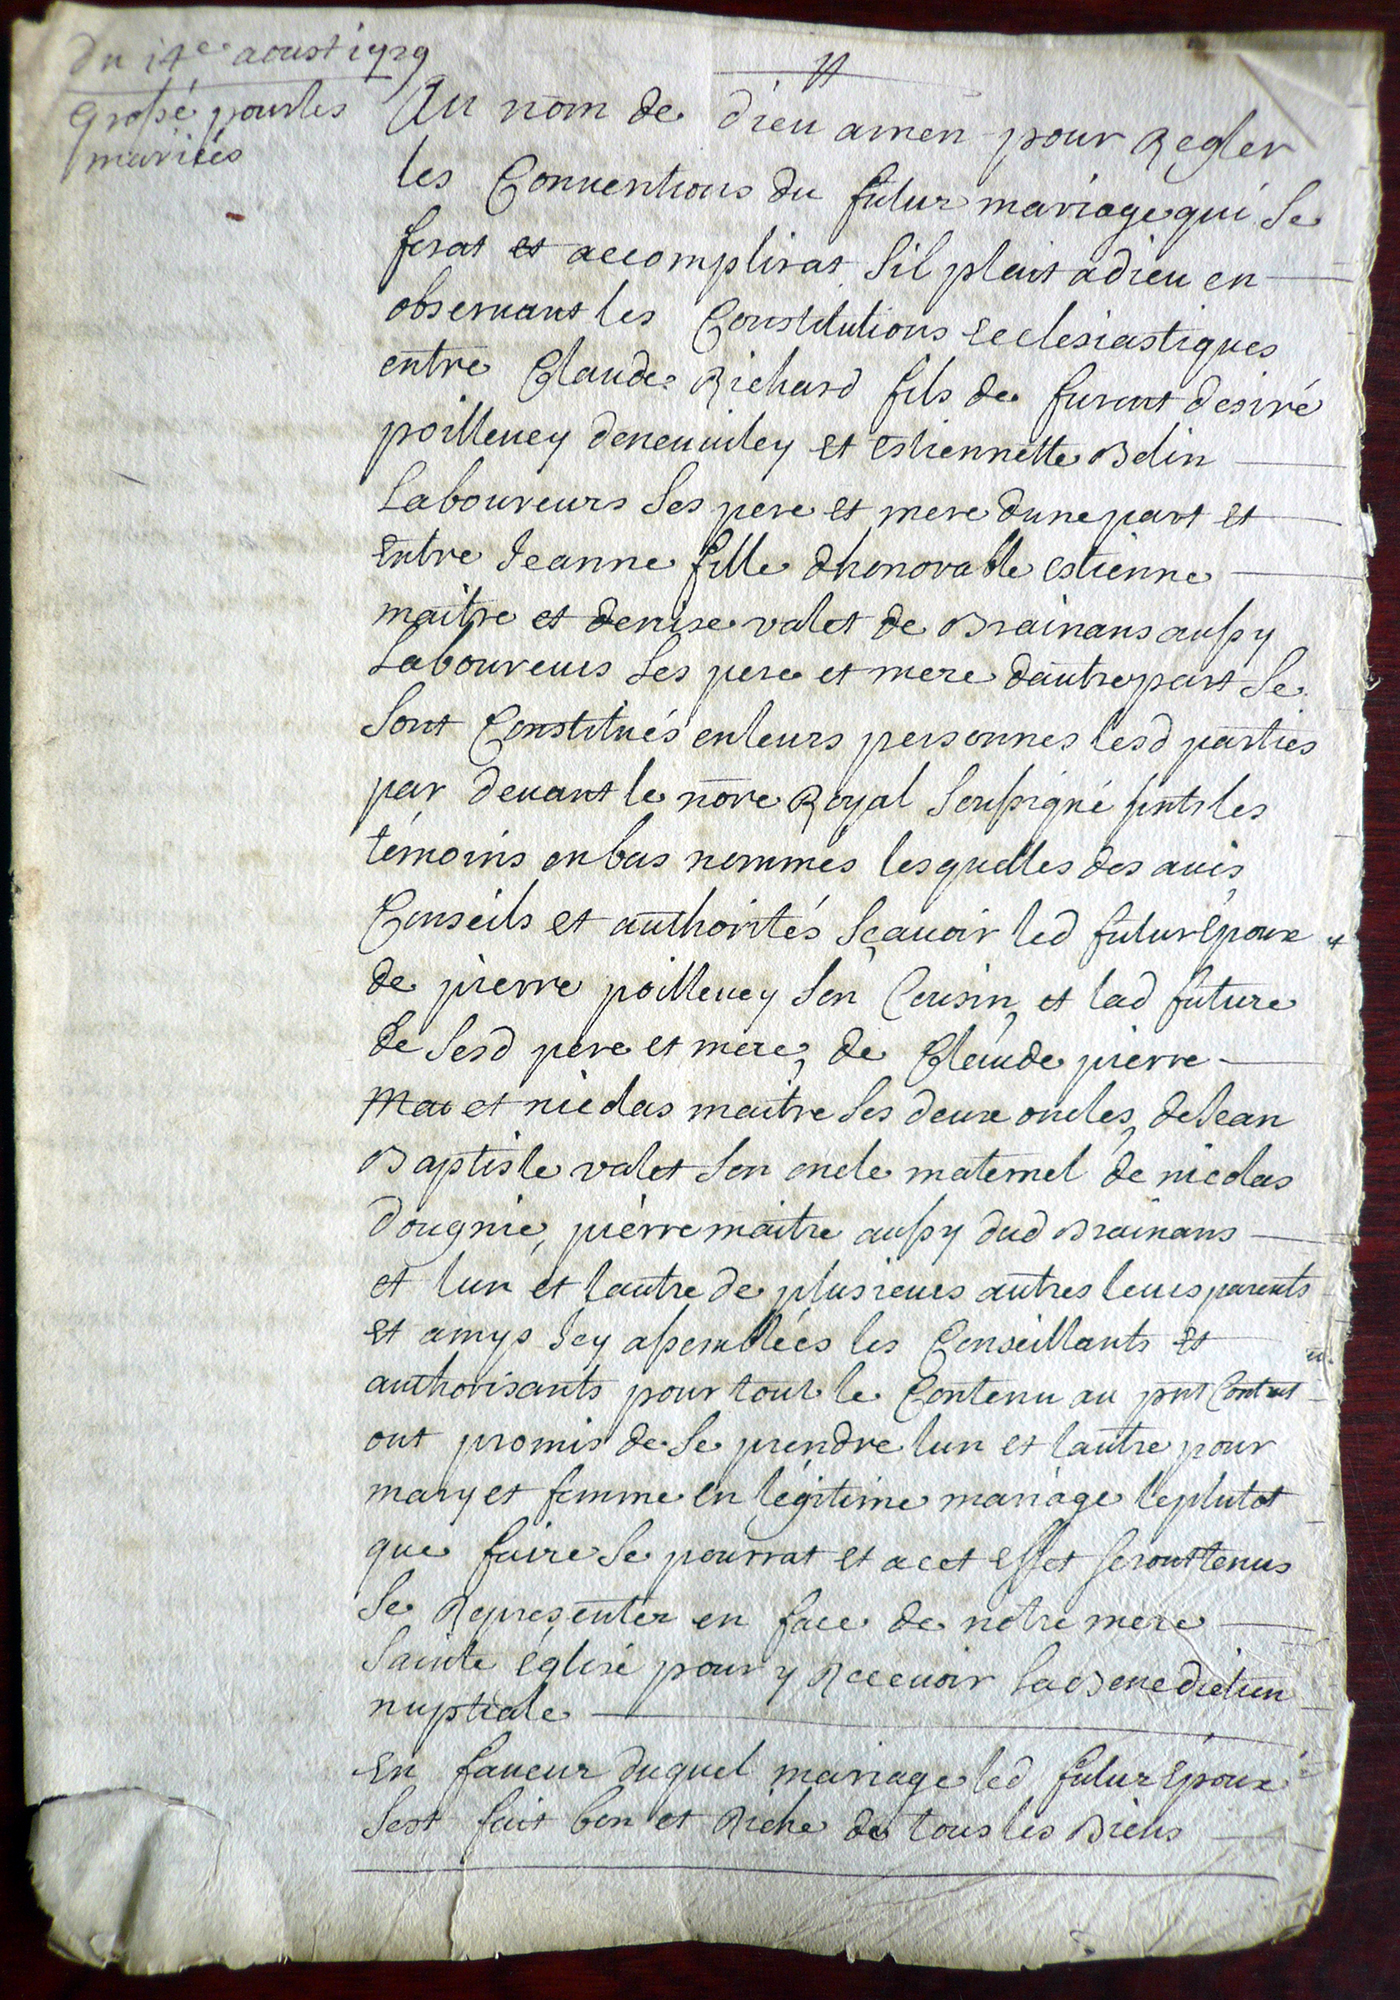 Du 14e aoust 1729
Grossé pour les
mariées
Au nom de dieu amen pour Regler
les Conuentions du futur mariage qui se
ferat et accomplirat sil plait a dieu en
obseruant les Constitutions Ecclesiastiques
entre Claude Richard fils de furent desiré
poilleuey deneuuiley et estiennette Belin
Laboureurs ses pere et mere dune part et
Entre Jeanne fille dhonorable estienne
maitre et denise valet de Brainans aussy
Laboureurs ses pere et mere dautre part se
sont Constitués en leurs personnes lesd parties
par deuant le nore Royal soussigné pnts les
témoins en bas nommés lesquelles des auis
Conseils et authorités sçauoir led futur Epoux
de pierre poilleuey son Cousin, et lad future
de sesd pere et mere, de Claude pierre
Mai et nicolas maitre ses deux oncles, de Jean
Baptiste valet son oncle maternel de nicolas
dougnie, pierre maitre aussy dud Brainans
et lun et lautre de plusieurs autres leurs parents
et amys icy assemblées les Conseillants et
authorisants pour tout le Contenu au pnt Contrat
ont promis de se prendre lun et lautre pour
mary et femme en légitime mariage le plutot
que faire se pourrat et a cet effet seront tenus
se Representer en face de notre mere
sainte église pour y Receuoir la Benediction
nuptiale
En faueur duquel mariage led futur Epoux
sest fait bon et Riche de tous les Biens